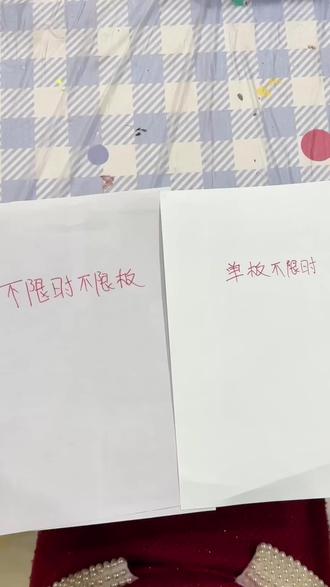 不限时不限板
单板不限时